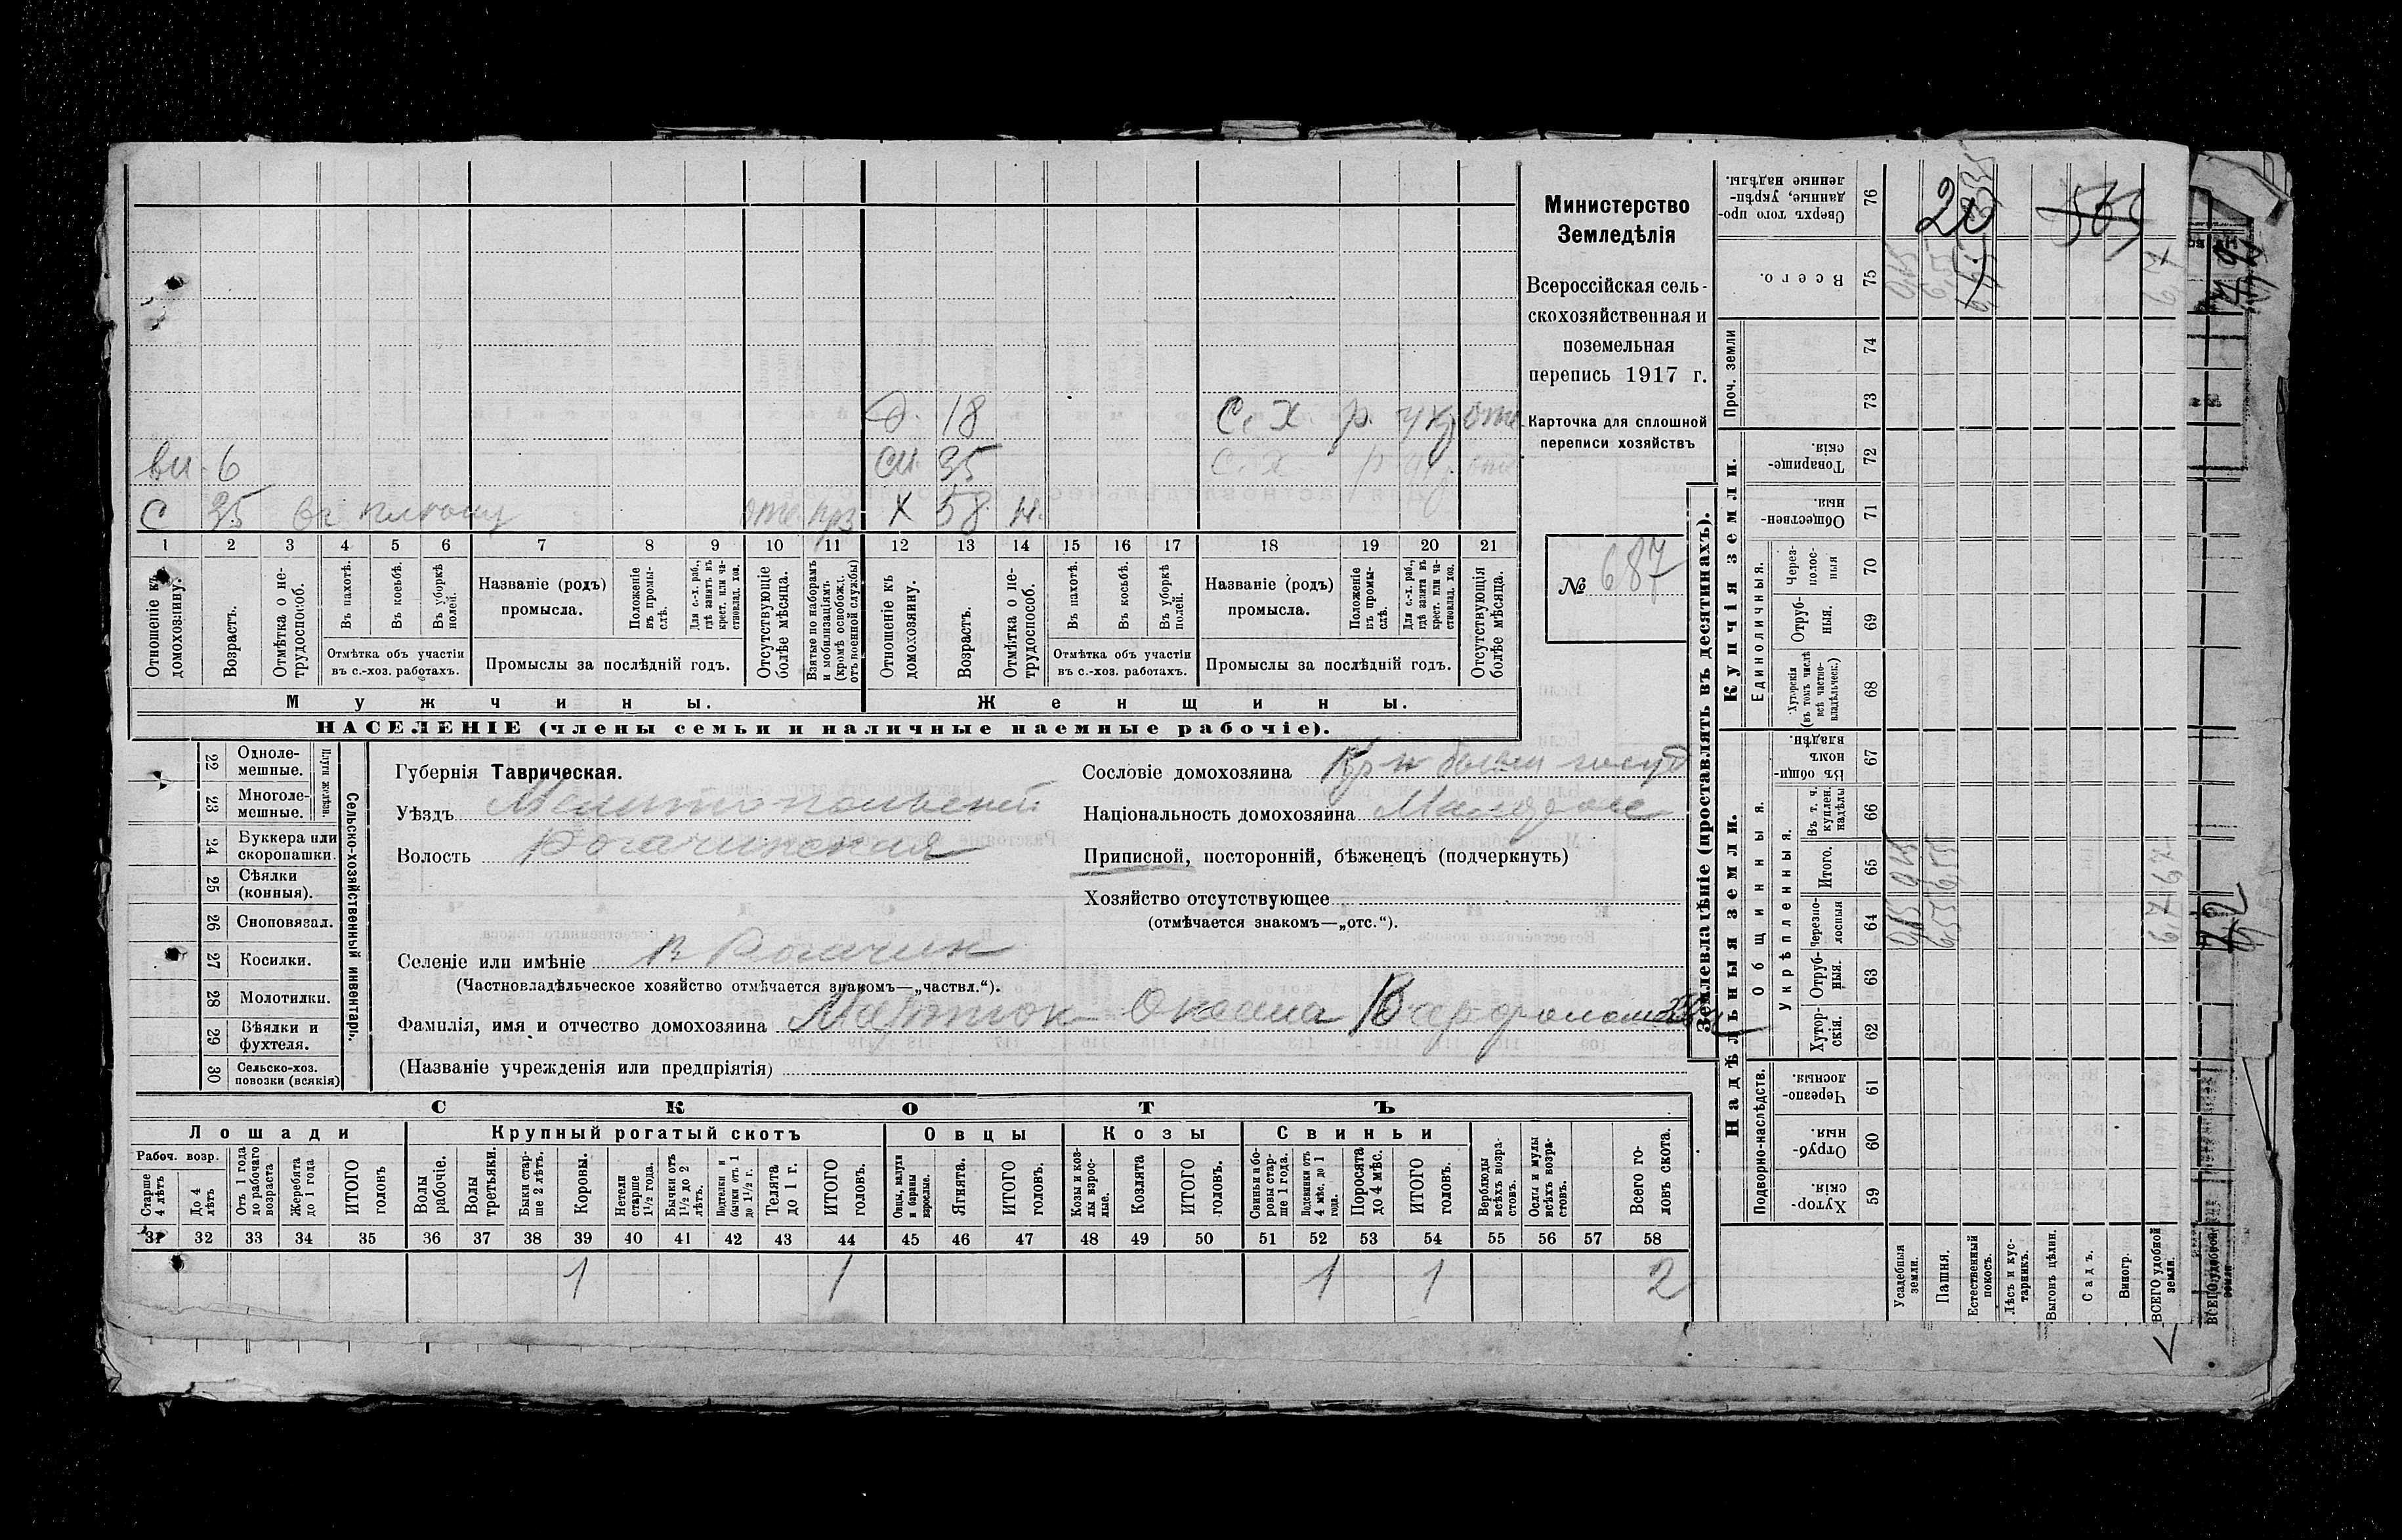 Д. 18 С. Х. р.
вн. 6 см. 35 С. Х
С 35 отс. Х 58 н.
1 2 3 4 5 6 7 8 9 10 11 12 13 14 15 16 17 18 19 20 21
Отношеніе къ домохозяину.
Возрастъ.
Отмѣтка о не-трудоспособ.
Въ пахотѣ.
Въ косьбѣ.
Въ уборкѣ полей.
Отмѣтка объ участіи въ с.-хоз. работахъ.
Названіе (родъ) промысла.
Положеніе въ промы-слѣ.
Для с.-х. раб., гдѣ занятъ въ крест. или ча-стновлад. хоз.
Промыслы за послѣдній годъ.
Отсутствующіе болѣе мѣсяца.
Взятые по наборамъ и мобилизаціямъ (кромѣ освобожд. отъ военной службы)
Отношеніе къ домохозяину.
Возрастъ.
Отмѣтка о не-трудоспособ.
Въ пахотѣ.
Въ косьбѣ.
Въ уборкѣ полей.
Отмѣтка объ участіи въ с.-хоз. работахъ.
Названіе (родъ) промысла.
Положеніе въ промы-слѣ.
Для с.-х. раб., гдѣ занята въ крест. или ча-стновлад. хоз.
Промыслы за послѣдній годъ.
Отсутствующія болѣе мѣсяца.
Мужчины. Женщины.
НАСЕЛЕНІЕ (члены семьи и наличные наемные рабочіе).
Министерство
Земледѣлія
Всероссійская сель-
скохозяйственная и
поземельная
перепись 1917 г.
Карточка для сплошной
переписи хозяйствъ
№ 687
22 Одноле-мешные.
23 Многоле-мешные.
Плуги желѣзн.
24 Буккера или скоропашки.
25 Сѣялки (конныя).
26 Сноповязал.
27 Косилки.
28 Молотилки.
29 Вѣялки и фухтеля.
30 Сельско-хоз. повозки (всякія)
Сельско-хозяйственный инвентарь.
Губернія Таврическая.
Уѣздъ Мелитопольский
Волость Рогачинская
Селеніе или имѣніе В Рогачик
(Частновладѣльческое хозяйство отмѣчается знакомъ—„частвл.“).
Фамилія, имя и отчество домохозяина Мартюк Оксана
(Названіе учрежденія или предпріятія)
Сословіе домохозяина
Національность домохозяина
Приписной, посторонній, бѣженецъ (подчеркнуть)
Хозяйство отсутствующее
(отмѣчается знакомъ—„отс.“).
СКОТЪ
Лошади Крупный рогатый скотъ Овцы Козы Свиньи
Рабоч. возр.
Старше 4 лѣтъ
До 4 лѣтъ
Отъ 1 года до рабочаго возраста
Жеребята до 1 года
ИТОГО головъ
Волы рабочіе.
Волы третьяки.
Быки стар-ше 2 лѣтъ.
Коровы.
Нетели старше 1½ года.
Бычки отъ 1½ до 2 лѣтъ.
Подтелки и бычки отъ 1 до 1½ г.
Телята до 1 г.
ИТОГО головъ.
Овцы, валухи и бараны взрослые.
Ягнята.
ИТОГО головъ.
Козы и коз-лы взрос-лые.
Козлята
ИТОГО головъ.
Свиньи и бо-ровы стар-ше 1 года.
Подсвинки отъ 4 мѣс. до 1 года.
Поросята до 4 мѣс.
ИТОГО головъ.
Верблюды всѣхъ возра-стовъ.
Ослы и мулы всѣхъ возра-стовъ.
Всего го-ловъ скота.
31 32 33 34 35 36 37 38 39 40 41 42 43 44 45 46 47 48 49 50 51 52 53 54 55 56 57 58
1 1 1 1 2
Землевладѣніе (проставлять въ десятинахъ).
Надѣльныя земли. Купчія земли. Проч. земли
Подворно-наслѣдств.
Общинныя.
Укрѣпленныя.
Единоличныя.
59 Хутор-скія.
60 Отруб-ныя.
61 Черезпо-лосныя.
62 Хутор-скія.
63 Отруб-ныя.
64 Черезпо-лосныя
65 Итого.
66 Въ т. ч. куплен. надѣлы
67 Въ общин-номъ владѣн.
68 Хуторскія (въ томъ числѣ всѣ частно-владѣльческ.)
69 Отруб-ныя.
70 Через-полос-ныя
71 Обществен-ныя.
72 Товарище-скія.
73
74
75 Всего.
76 Сверхъ того про-данные, укрѣп-ленные надѣлы.
Усадебныя земли.
Пашня.
Естественный покосъ.
Лѣсъ и кус-тарникъ.
Выгонъ цѣлин.
Садъ.
Виногр.
ВСЕГО удобной земли.
ВСЕГО удобной земли.